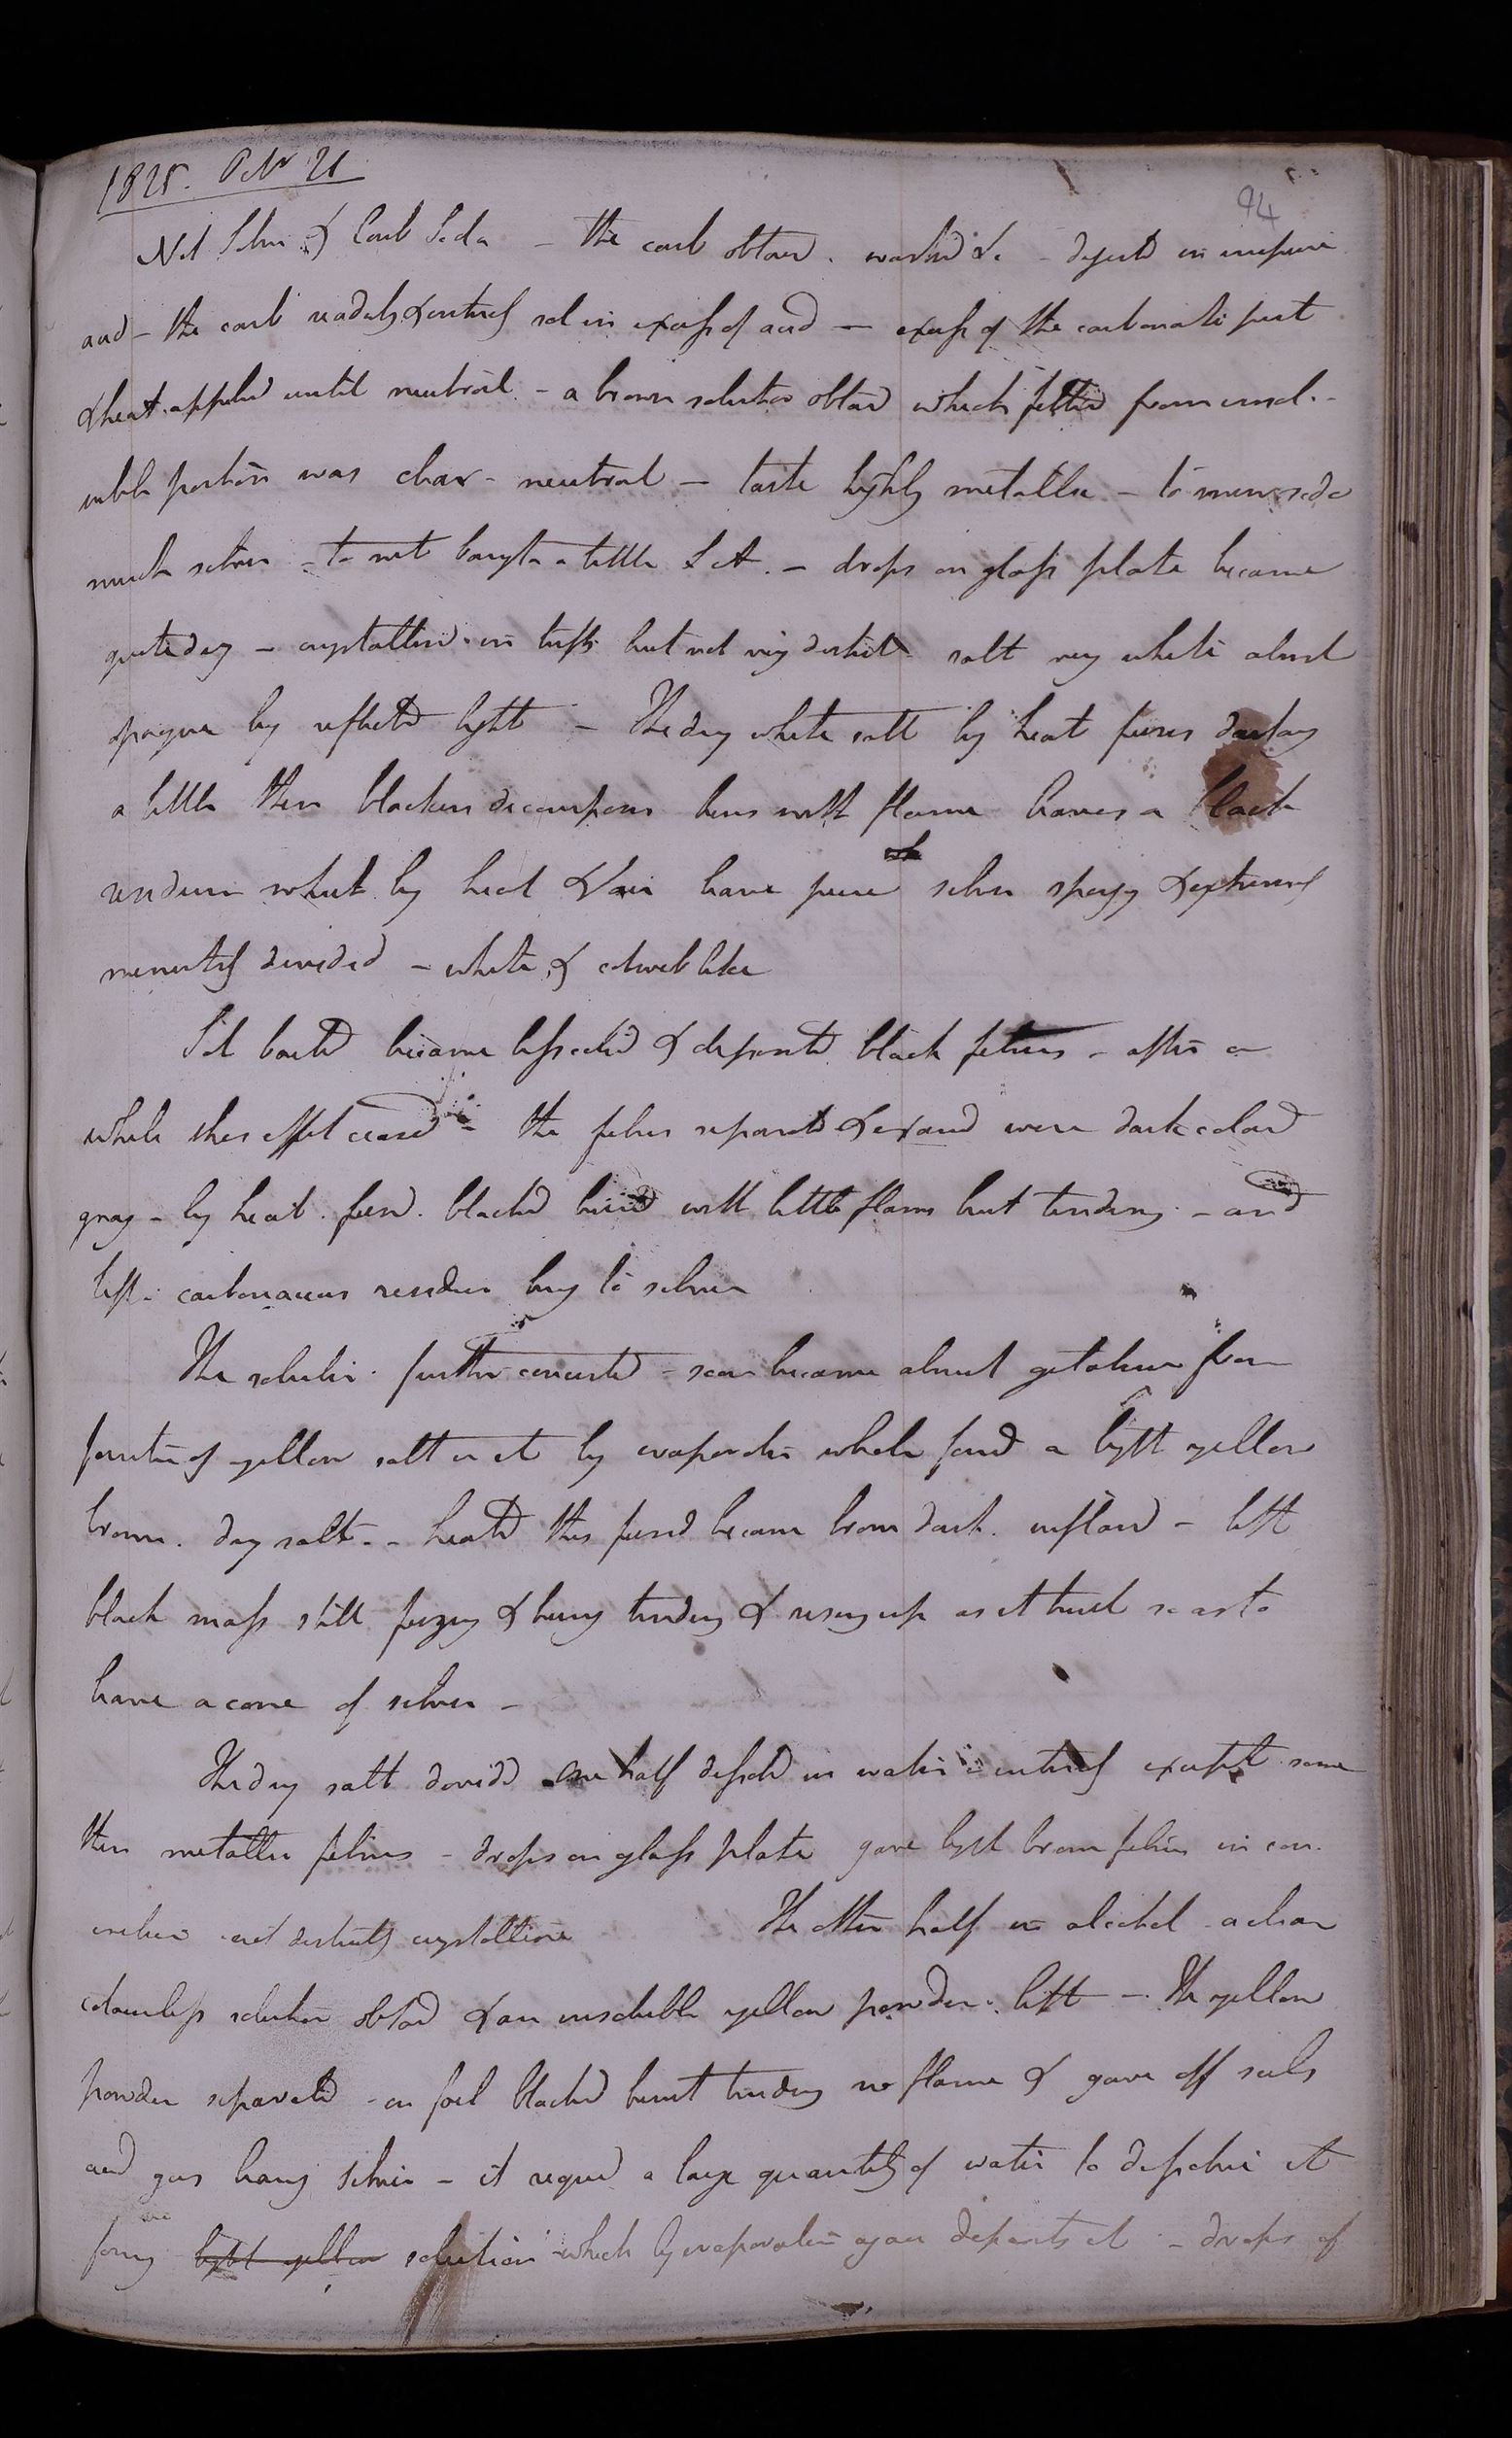 1825. Octr 21
94
Nit Silver & Carb Soda - the carb obtaind. washed &c - digested in impure
acid - the carb readily & entirely sol in excess of acid - excess of the carbonate put
& heat applied until neutral - a brown solution obtaind which filterd from insol-
uble portion was clear - neutral - taste highly metallic - to mur soda
much silver - to nit baryta a little S A. - drops on glass plate became
quite dry - crystallised in tufts but not very distinct salt very white almost
opaque by reflected light - The dry white salt by heat fuses darkens
a little then blackens decomposes burns with flame leaves a black
residuum which by heat & air leave pure silver spongy & extremely
minutely divided - white & cobweb like
Sol boiled became less cold & deposited black films - after a
while this effect ceased - the films separated & examd were dark cold
gray - by heat fused. blackd burnd with little flame but tindery - and
left carbonaceous residue burng to silver
The solution further concentd - soon became almost gelatinous from
formation of yellow salt in it by evaporation whole formd a light yellow
brown dry salt - heated this fused became brown dark. inflamd - left
black mass still fuzing & burng tindery & rising up as it burnt so as to
leave a cone of silver -
The dry salt dividd one half dissolvd in water entirely except some
thin metallic films - drops on glass plate gave light brown films in con.
not distinctly crystalline The other half in alcohol a clear
colourless solution obtd & an insoluble yellow powder left - The yellow
powder separated - on foil blackd burnt tindery no flame & gave off sul
acid gas leavg silver - it requd a large quantity of water to dissolve it
formg light yellow solution which by evaporation again deposits it - drops of